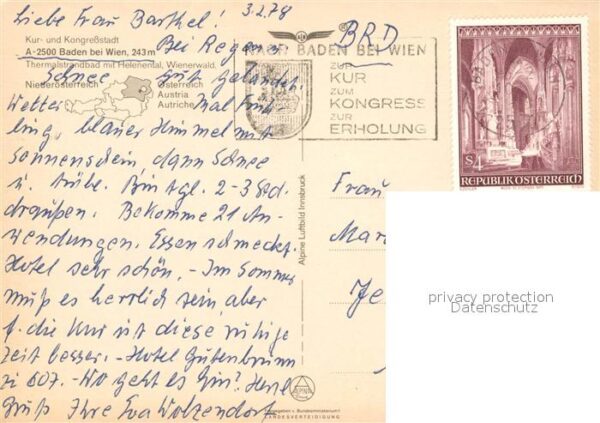 Liebe Frau Barthel! 3.2.78
Kur- und Kongreßstadt
A-2500 Baden bei Wien, 243m
Thermalstrandbad mit Helenental, Wienerwald.
Niederösterreich
Österreich
Austria
Autriche
Bei Regen
Schnee gut gelandet.
Wetter Mal Früh
ling, blauer Himmel mit
Sonnenschein dann Schnee
u. trübe. Bin tgl. 2-3 Std.
draußen. Bekomme 21 An-
wendungen. Essen schmeckt.
Hotel sehr schön. - Im Sommer
muß es herrlich sein, aber
f. die Kur ist diese ruhige
Zeit besser. - Hotel Gutenbrunn
Zi 607. - Wo geht es hin? Herzl
Gruß Ihre Eva Wolzendorf
BADEN BEI WIEN
ZUR
KUR
ZUM
KONGRESS
ZUR
ERHOLUNG
BRD
S4
REPUBLIK ÖSTERREICH
Frau
Mar
Je
Alpine Luftbild Innsbruck
privacy protection
Datenschutz
Freigegeben v. Bundesministerium f.
LANDESVERTEIDIGUNG